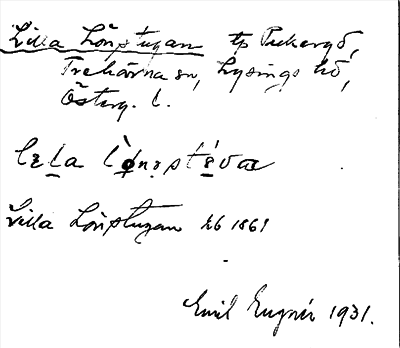 Lilla Lönstugan tp Pukergö,
Trehörna sn, Lysings hd,
Österg. l.
Lilla Lönstugan Kb 1861
Emil Eugnér 1931.